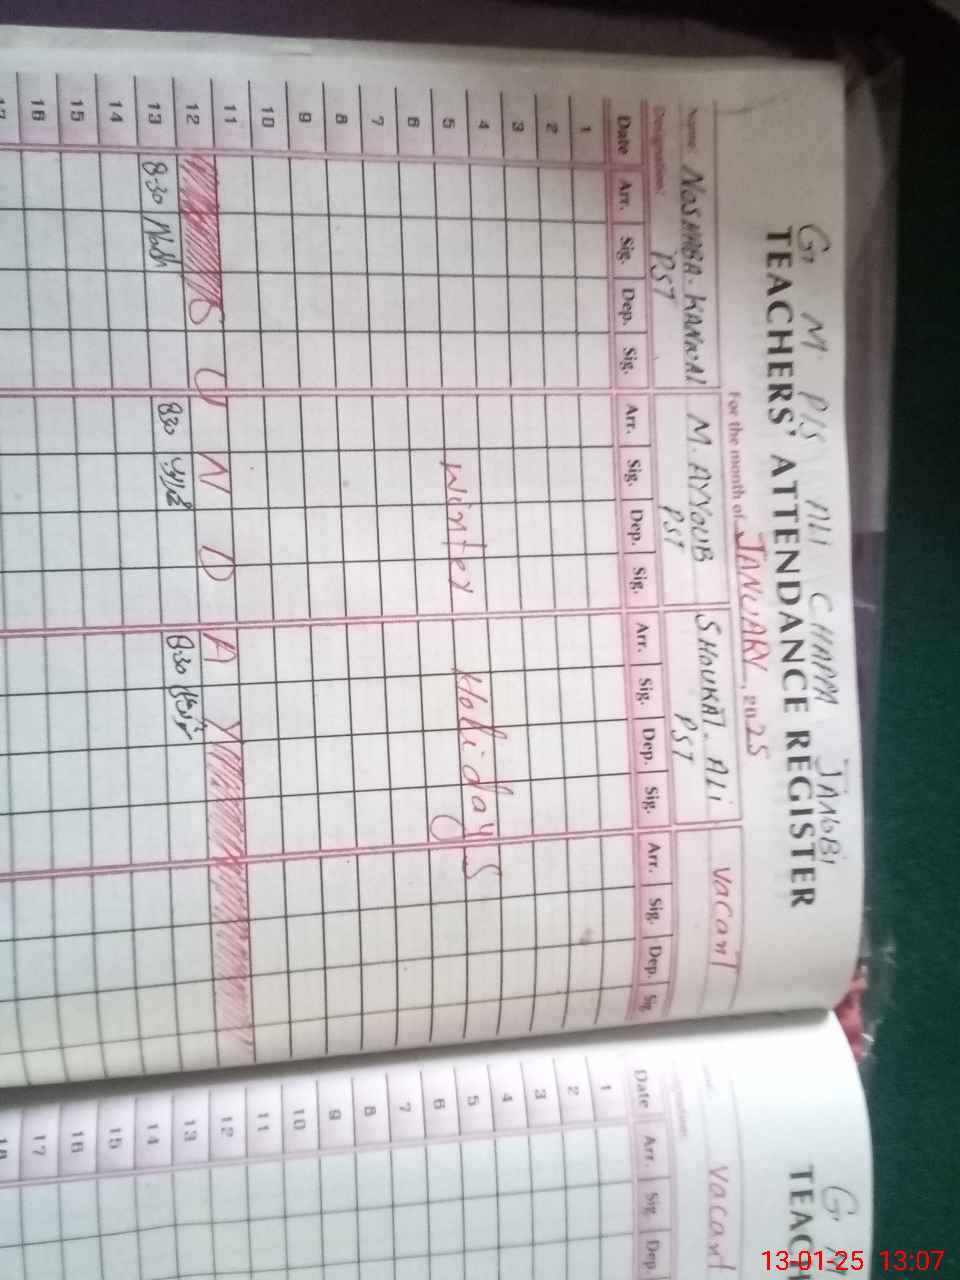 G. M. P/S ALI CHAPPA JANOBI
TEACHERS' ATTENDANCE REGISTER
For the month of JANUARY, 2025
Name: NOSHABA-KANWAL M. AYYOUB SHOUKAT. ALI Vacant
Designation: PST PST PST
Date Arr. Sig. Dep. Sig. Arr. Sig. Dep. Sig. Arr. Sig. Dep. Sig. Arr. Sig. Dep. Sig
1
2
3
4
5 Winter Holidays
6
7
8
9
10
11
12 S U N D A Y
13 8:30 Nosh 830 8:30
14
15
16
17
G. M
TEACH
Vacant
Date Arr. Sig. Dep.
1
2
3
4
5
6
7
8
9
10
11
12
13
14
15
16
17
18
13-01-25 13:07